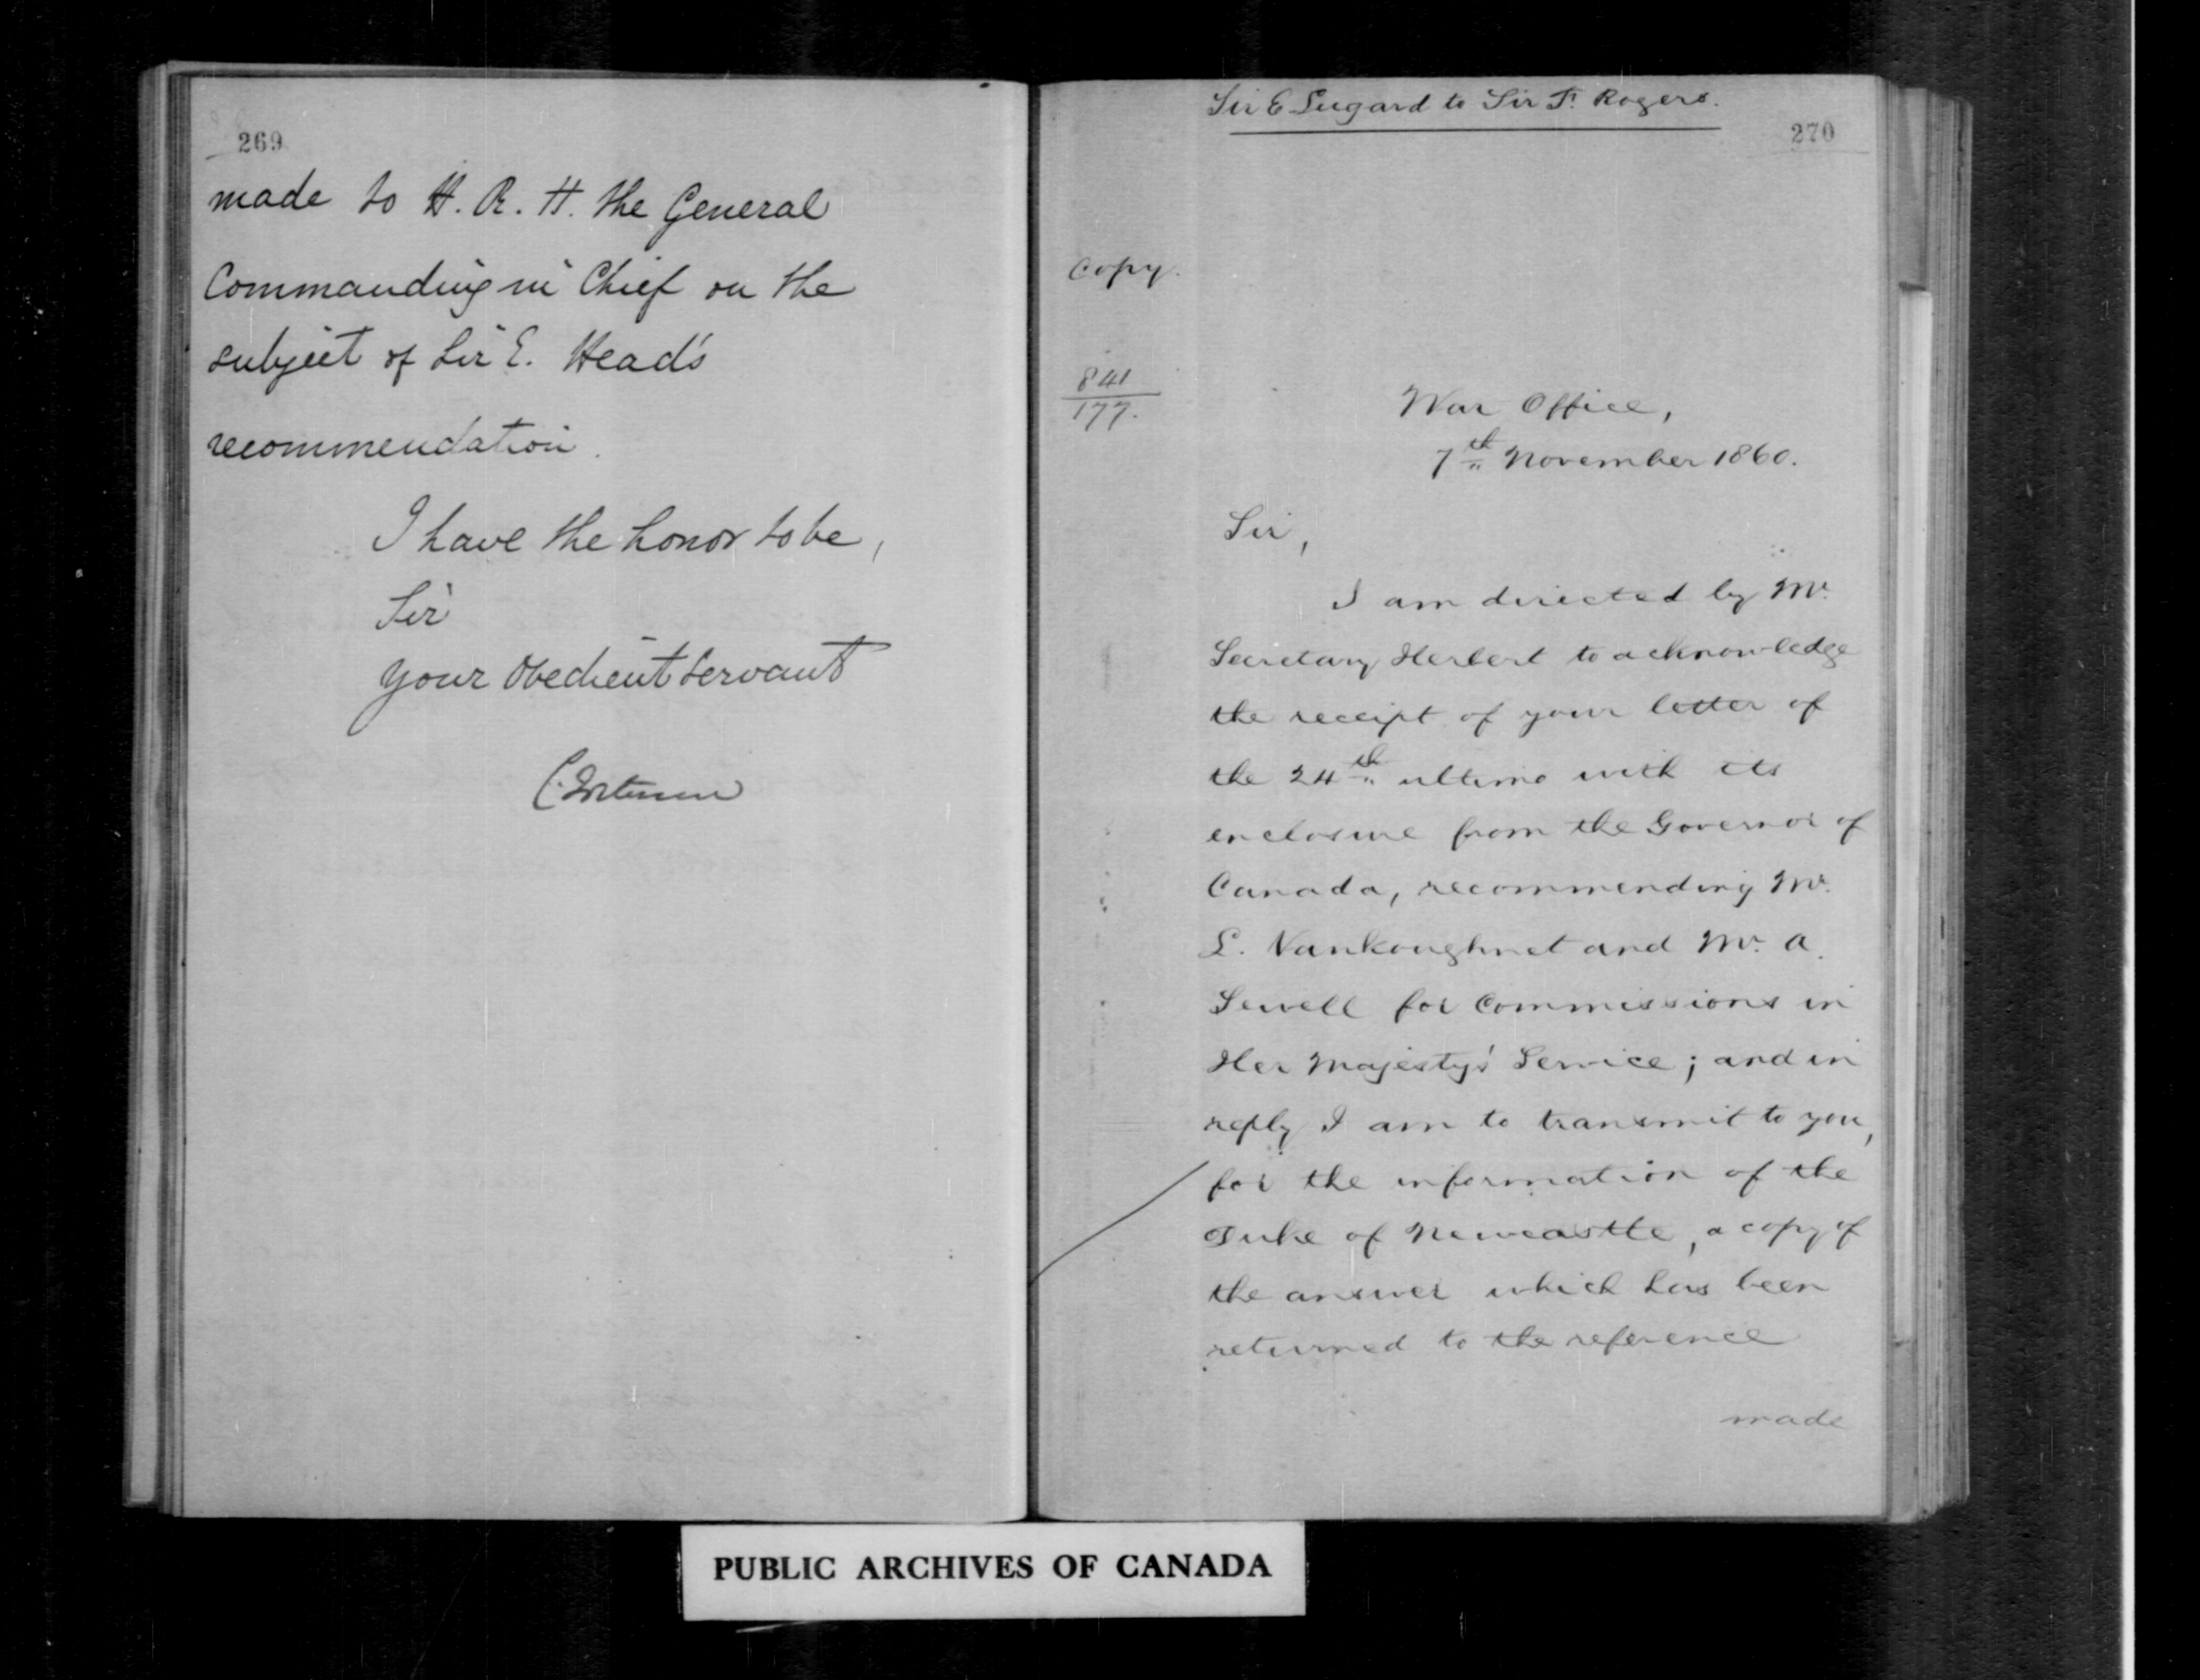 269
made to H. R. H. the General
Commanding in Chief on the
subject of Sir E. Head's
recommendation.
I have the honor to be,
Sir
Your Obedient Servant
Sir E Lugard to Sir F. Rogers.
270
Copy.
841
177.
War Office,
7th November 1860.
Sir,
I am directed by Mr.
Secretary Herbert to acknowledge
the receipt of your letter of
the 24th ultimo with its
enclosure from the Governor of
Canada, recommending Mr.
L. Vankoughnet and Mr. A.
Sewell for Commissions in
Her Majesty's Service; and in
reply I am to transmit to you,
for the information of the
Duke of Newcastle, a copy of
the answer which has been
returned to the reference
made
PUBLIC ARCHIVES OF CANADA